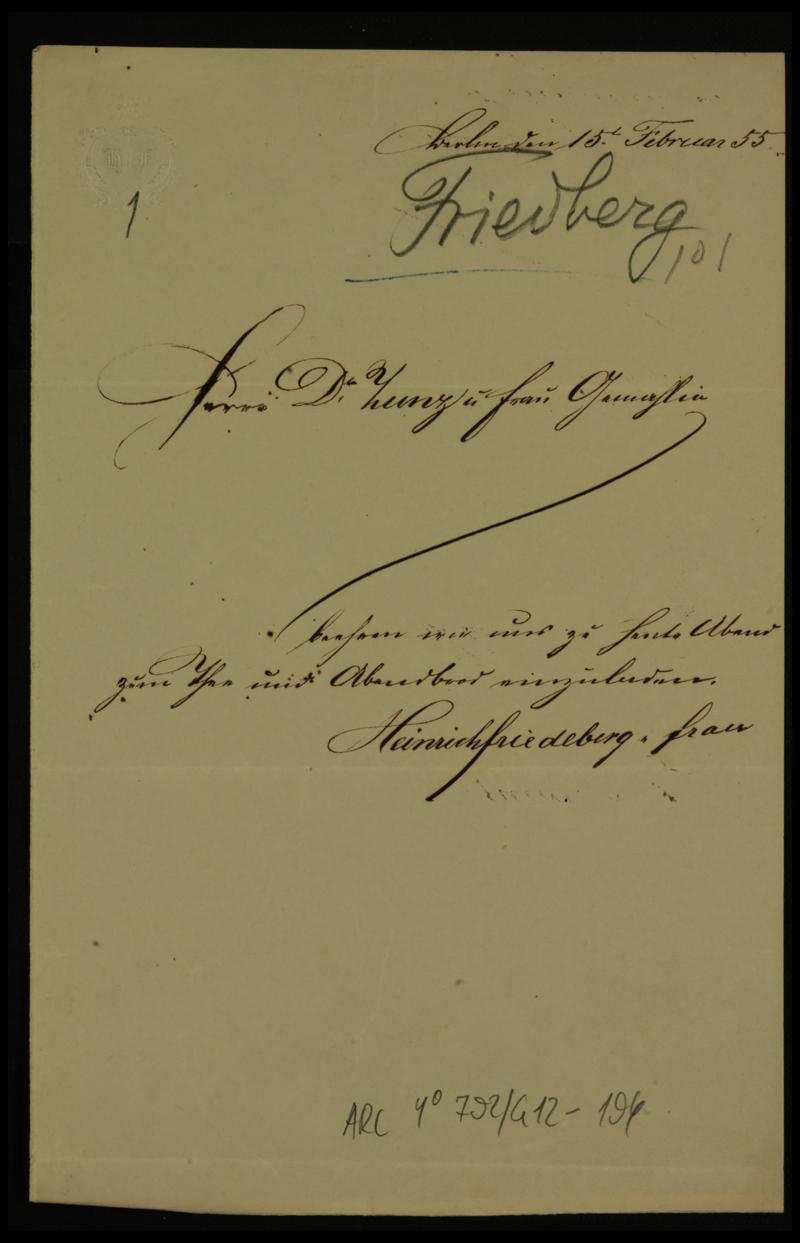 Berlin den 15t Februar 55.
Friedberg
101
1
Herrn Dr. Zunz u Frau Gemahlin
beehren wir uns zu heute Abend
zum Thee und Abendbrod einzuladen.
Heinrich Friedeberg u. Frau
ARC 4° 792/G12-196